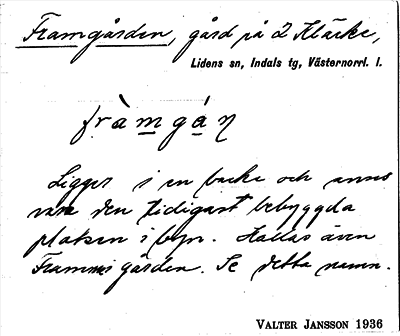 Framgården, gård på 2 Kläcke,
Lidens sn, Indals tg, Västernorrl. l.
fràmgáṇ
Ligger i en backe och anses
vara den tidigast bebyggda
platsen i byn. Kallas även
Frammigården. Se detta namn.
VALTER JANSSON 1936